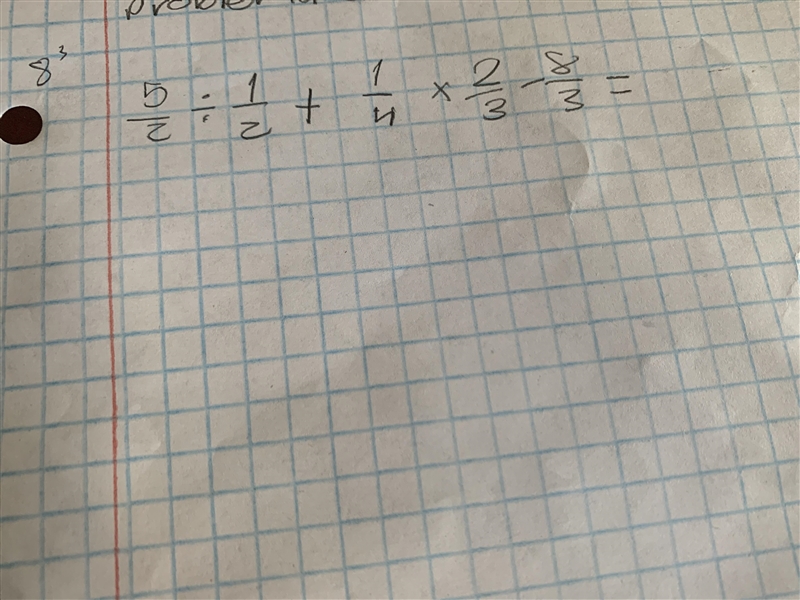 8³
5/2 ÷ 1/2 + 1/4 × 2/3 - 8/3 =